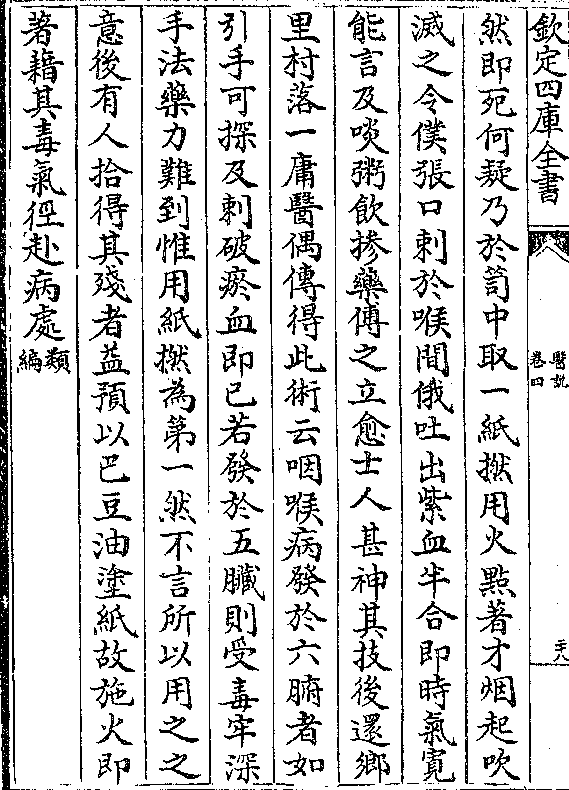 欽定四庫全書
醫說
卷四
二八
然即死何疑乃於笥中取一紙撚用火點著才烟起吹
滅之令僕張口刺於喉間俄吐出紫血半合即時氣寛
能言及啖粥飲掺藥傅之立愈士人甚神其技後還鄉
里村落一庸醫偶傳得此術云咽喉病發於六腑者如
引手可探及刺破瘀血即已若發於五臟則受毒牢深
手法藥力難到惟用紙撚為第一然不言所以用之之
意後有人拾得其殘者益預以巴豆油塗紙故施火即
著藉其毒氣徑赴病處類編